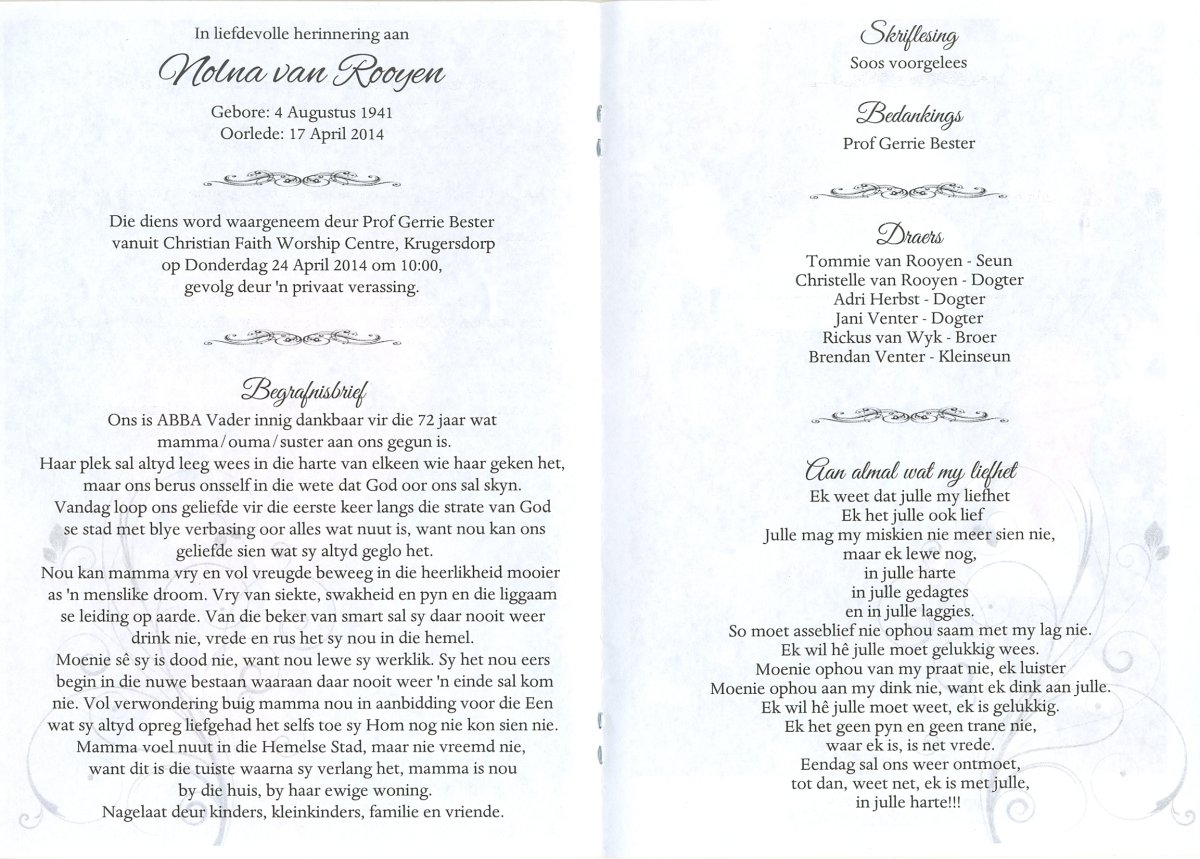 In liefdevolle herinnering aan
Nolna van Rooyen
Gebore: 4 Augustus 1941
Oorlede: 17 April 2014
Die diens word waargeneem deur Prof Gerrie Bester
vanuit Christian Faith Worship Centre, Krugersdorp
op Donderdag 24 April 2014 om 10:00,
gevolg deur 'n privaat verassing.
Begrafnisbrief
Ons is ABBA Vader innig dankbaar vir die 72 jaar wat
mamma/ouma/suster aan ons gegun is.
Haar plek sal altyd leeg wees in die harte van elkeen wie haar geken het,
maar ons berus onsself in die wete dat God oor ons sal skyn.
Vandag loop ons geliefde vir die eerste keer langs die strate van God
se stad met blye verbasing oor alles wat nuut is, want nou kan ons
geliefde sien wat sy altyd geglo het.
Nou kan mamma vry en vol vreugde beweeg in die heerlikheid mooier
as 'n menslike droom. Vry van siekte, swakheid en pyn en die liggaam
se leiding op aarde. Van die beker van smart sal sy daar nooit weer
drink nie, vrede en rus het sy nou in die hemel.
Moenie sê sy is dood nie, want nou lewe sy werklik. Sy het nou eers
begin in die nuwe bestaan waaraan daar nooit weer 'n einde sal kom
nie. Vol verwondering buig mamma nou in aanbidding voor die Een
wat sy altyd opreg liefgehad het selfs toe sy Hom nog nie kon sien nie.
Mamma voel nuut in die Hemelse Stad, maar nie vreemd nie,
want dit is die tuiste waarna sy verlang het, mamma is nou
by die huis, by haar ewige woning.
Nagelaat deur kinders, kleinkinders, familie en vriende.
Skriflesing
Soos voorgelees
Bedankings
Prof Gerrie Bester
Draers
Tommie van Rooyen - Seun
Christelle van Rooyen - Dogter
Adri Herbst - Dogter
Jani Venter - Dogter
Rickus van Wyk - Broer
Brendan Venter - Kleinseun
Aan almal wat my liefhet
Ek weet dat julle my liefhet
Ek het julle ook lief
Julle mag my miskien nie meer sien nie,
maar ek lewe nog,
in julle harte
in julle gedagtes
en in julle laggies.
So moet asseblief nie ophou saam met my lag nie.
Ek wil hê julle moet gelukkig wees.
Moenie ophou van my praat nie, ek luister
Moenie ophou aan my dink nie, want ek dink aan julle.
Ek wil hê julle moet weet, ek is gelukkig.
Ek het geen pyn en geen trane nie,
waar ek is, is net vrede.
Eendag sal ons weer ontmoet,
tot dan, weet net, ek is met julle,
in julle harte!!!